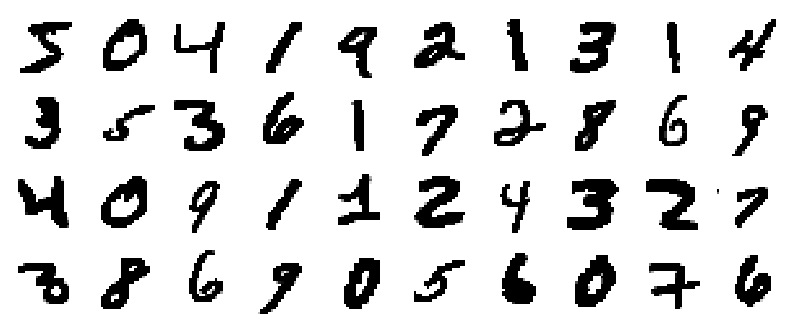 5 0 4 1 9 2 1 3 1 4
3 5 3 6 1 7 2 8 6 9
4 0 9 1 1 2 4 3 2 7
3 8 6 9 0 5 6 0 7 6